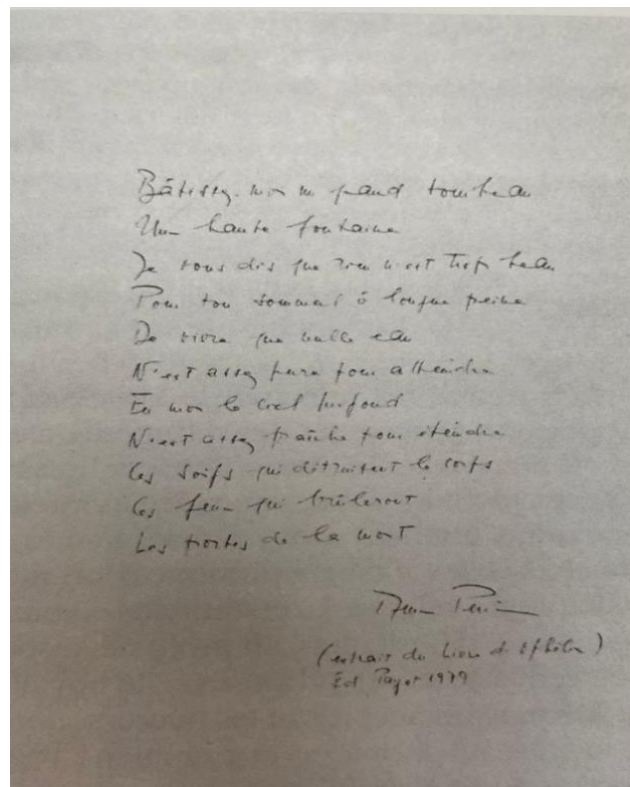 Bâtissez-moi un grand tombeau
Une haute fontaine
Je vous dis que rien n'est trop beau
Pour ton sommeil ô longue peine
De vivre que nulle eau
N'est assez pure pour atteindre
En moi le ciel profond
N'est assez fraîche pour éteindre
Ces soifs qui détruisent le corps
Ces feux qui brûleront
Les portes de la mort
(extrait du Livre d'Ophélie)
Ed. Payot 1979